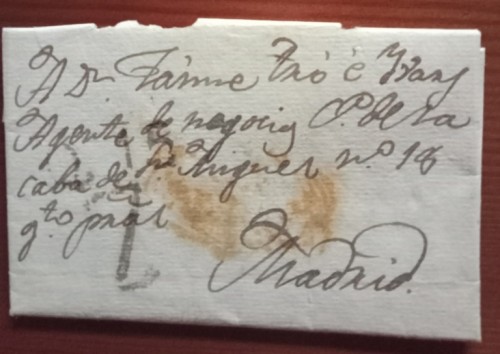 A Dn Jaime Tró è Yxarp
Agente de negocios C. de la
caba de Sn Miguel n.o 18
q.to pral
Madrid.